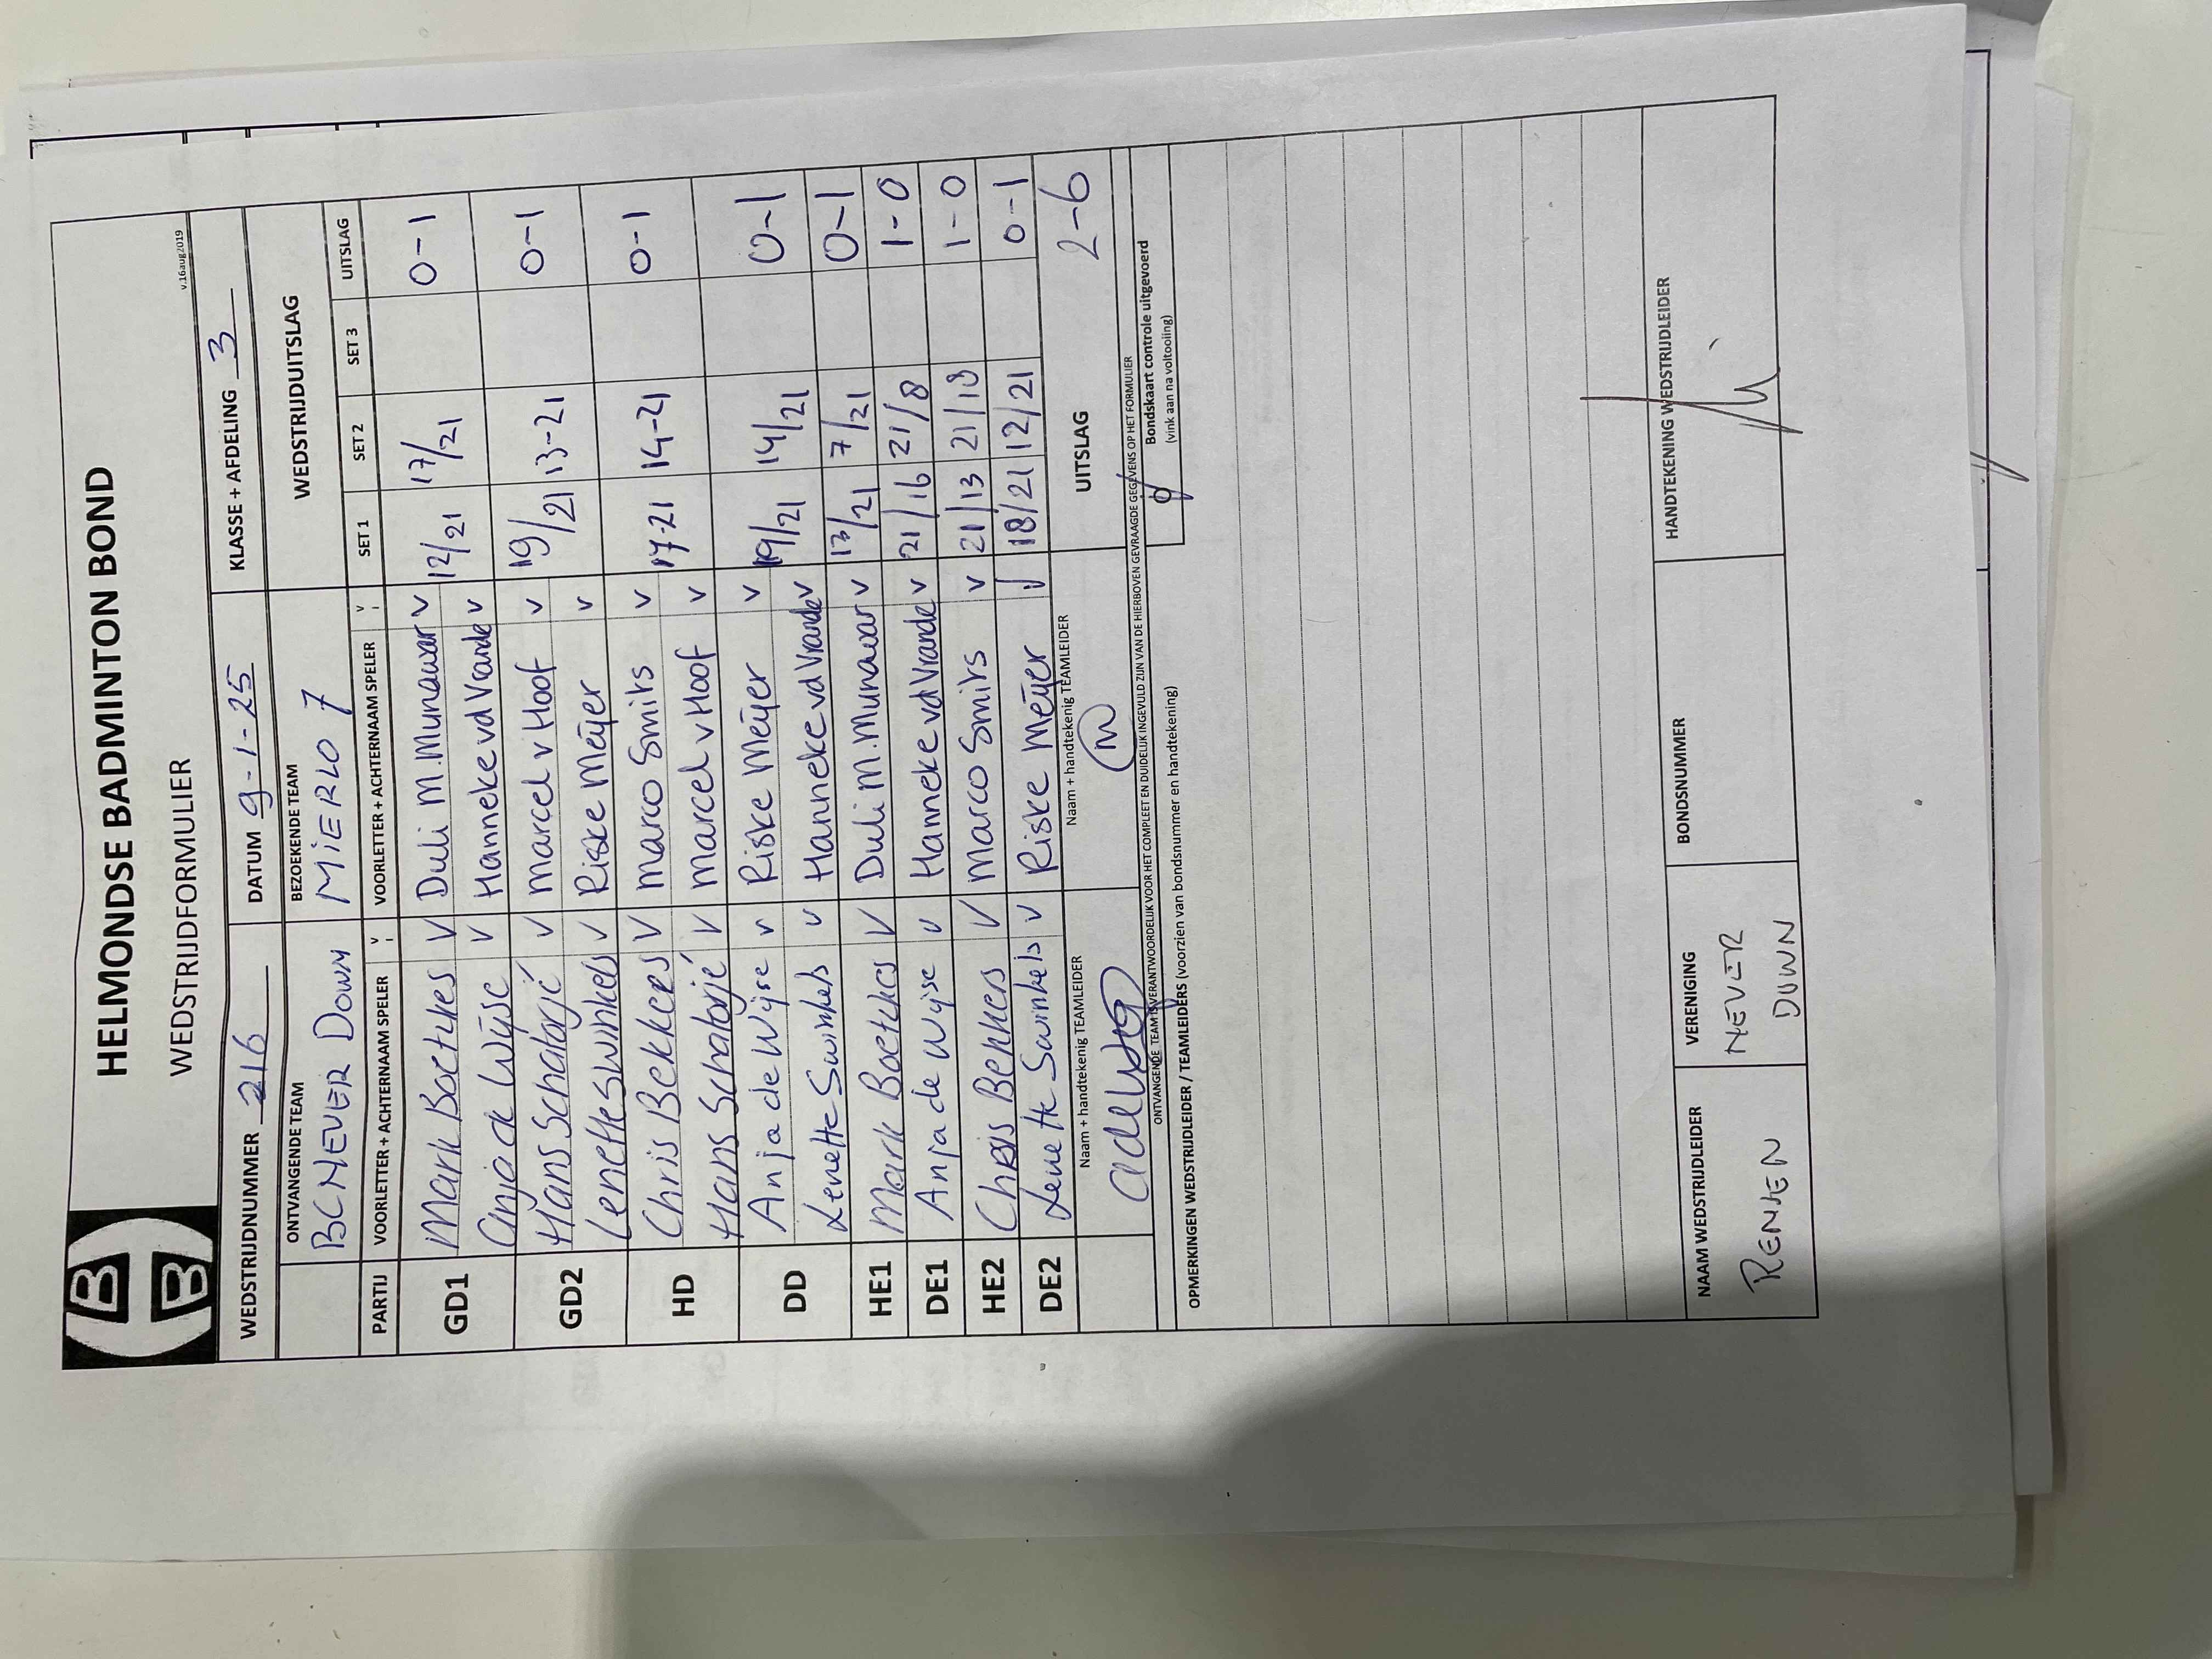 HELMONDSE BADMINTON BOND
WEDSTRIJDFORMULIER
v.16aug2019
WEDSTRIJDNUMMER 216 DATUM 9-1-25 KLASSE + AFDELING 3
ONTVANGENDE TEAM BEZOEKENDE TEAM WEDSTRIJDUITSLAG
BC NEVER DOWN MIERLO 7
PARTIJ VOORLETTER + ACHTERNAAM SPELER v VOORLETTER + ACHTERNAAM SPELER v SET 1 SET 2 SET 3 UITSLAG
GD1 Mark Boetzkes V Duli M. Munawar v 12/21 17/21 0-1
Anja de Wijse V Hanneke vd Vrande v
GD2 Hans Schatorjé V Marcel v Hoof v 19/21 13-21 0-1
Lenette Swinkels V Riske Meijer v
HD Chris Bekkers V Marco Smits v 17-21 14-21 0-1
Hans Schatorjé V Marcel v Hoof v
DD Anja de Wijse v Riske Meijer v 19/21 14/21 0-1
Lenette Swinkels v Hanneke vd Vrande v
HE1 Mark Boetzkes V Duli M. Munawar v 13/21 7/21 0-1
DE1 Anja de Wijse v Hanneke vd Vrande v 21/16 21/8 1-0
HE2 Chris Bekkers V Marco Smits v 21/13 21/18 1-0
DE2 Lenette Swinkels v Riske Meijer v 18/21 12/21 0-1
Naam + handtekenig TEAMLEIDER Naam + handtekenig TEAMLEIDER UITSLAG 2-6
ONTVANGENDE TEAM IS VERANTWOORDELIJK VOOR HET COMPLEET EN DUIDELIJK INGEVULD ZIJN VAN DE HIERBOVEN GEVRAAGDE GEGEVENS OP HET FORMULIER
OPMERKINGEN WEDSTRIJDLEIDER / TEAMLEIDERS (voorzien van bondsnummer en handtekening)
Bondskaart controle uitgevoerd
(vink aan na voltooiing)
NAAM WEDSTRIJDLEIDER VERENIGING BONDSNUMMER HANDTEKENING WEDSTRIJDLEIDER
NEVER
DOWN